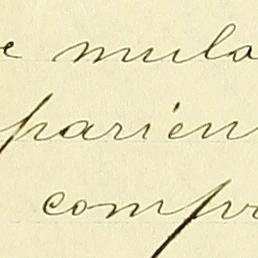 e mula
parien
compr